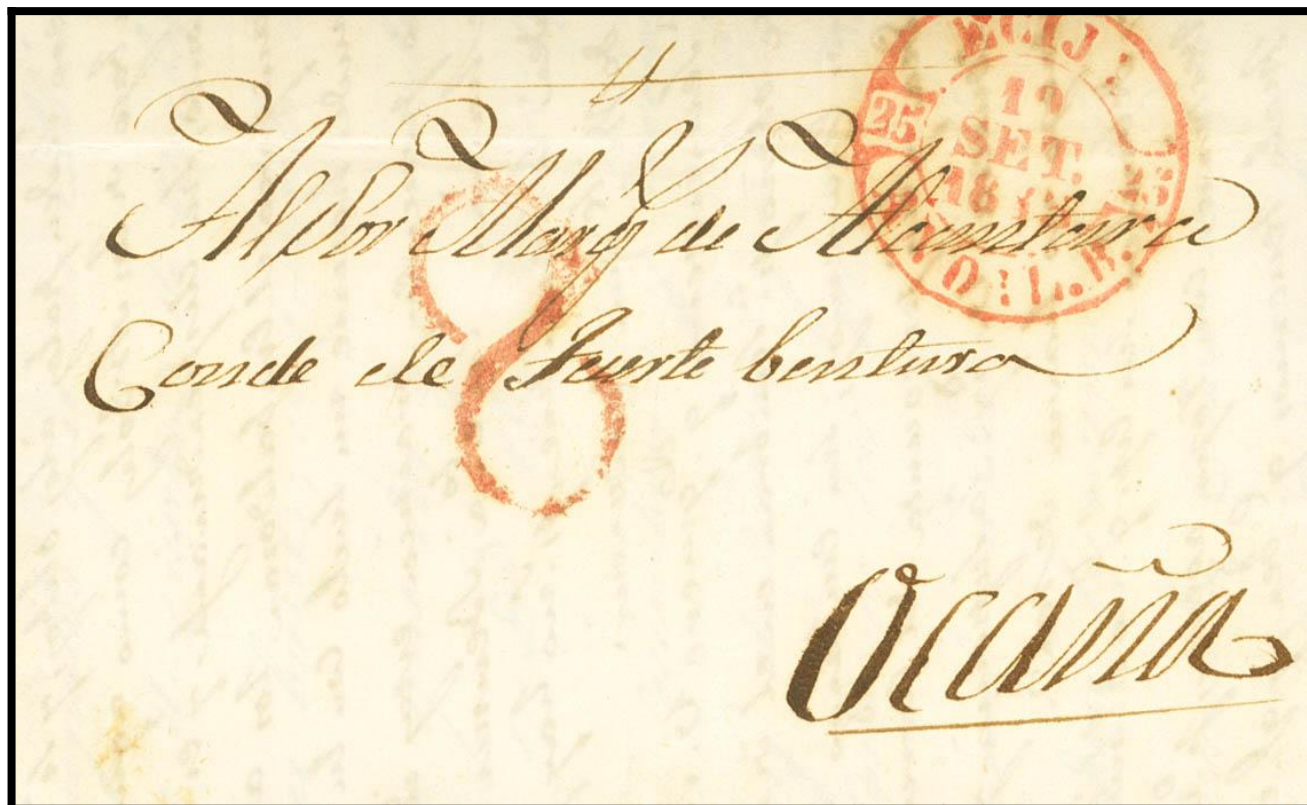 ECIJA
25 19 25
SET.
18
Al Sor Marqs de Alcantara
8
Conde de Fuerte bentura
Ocaña